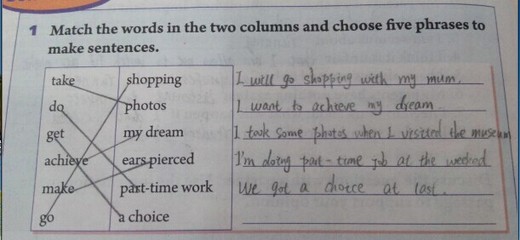 1 Match the words in the two columns and choose five phrases to
make sentences.
take shopping I will go shopping with my mum.
do photos I want to achieve my dream.
get my dream I took some photos when I visited the museum
achieve ears pierced I'm doing part-time job at the
make part-time work We got a choice at last.
go a choice